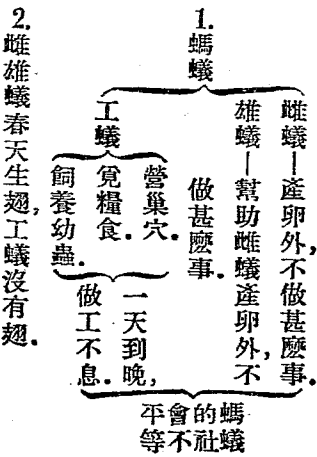 1. 螞蟻
雌蟻—產卵外,不做甚麽事.
雄蟻—幫助雌蟻產卵外,不
做甚麽事.
工蟻
營巢穴.
覓糧食.
飼養幼蟲.
一天到晚,
做工不息.
螞蟻
的社
會不
平等
2. 雌雄蟻春天生翅,工蟻沒有翅.